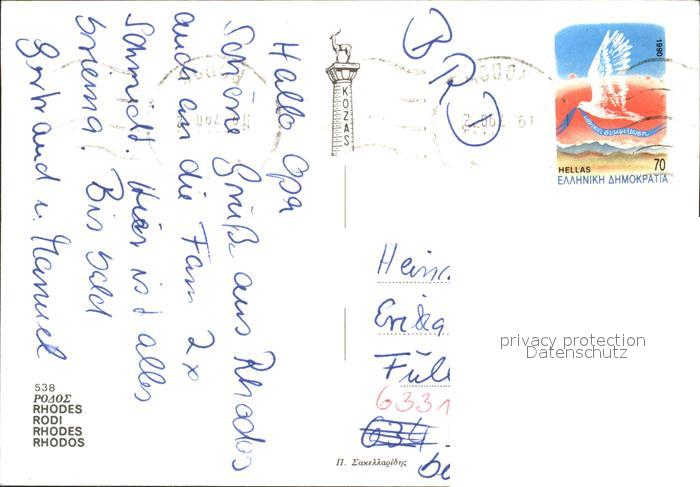 Hallo Opa
Schöne Grüße aus Rhodos
auch an die Fam 2 x
Schmidt. Hier ist alles
Bis bald
Gertraud u. Manuel
538
ΡΟΔΟΣ
RHODES
RODI
RHODES
RHODOS
KOZAS
Π. Σακελλαρίδης
BRD
1990
HELLAS 70
ΕΛΛΗΝΙΚΗ ΔΗΜΟΚΡΑΤΙΑ
Erika
6331
634
privacy protection
Datenschutz